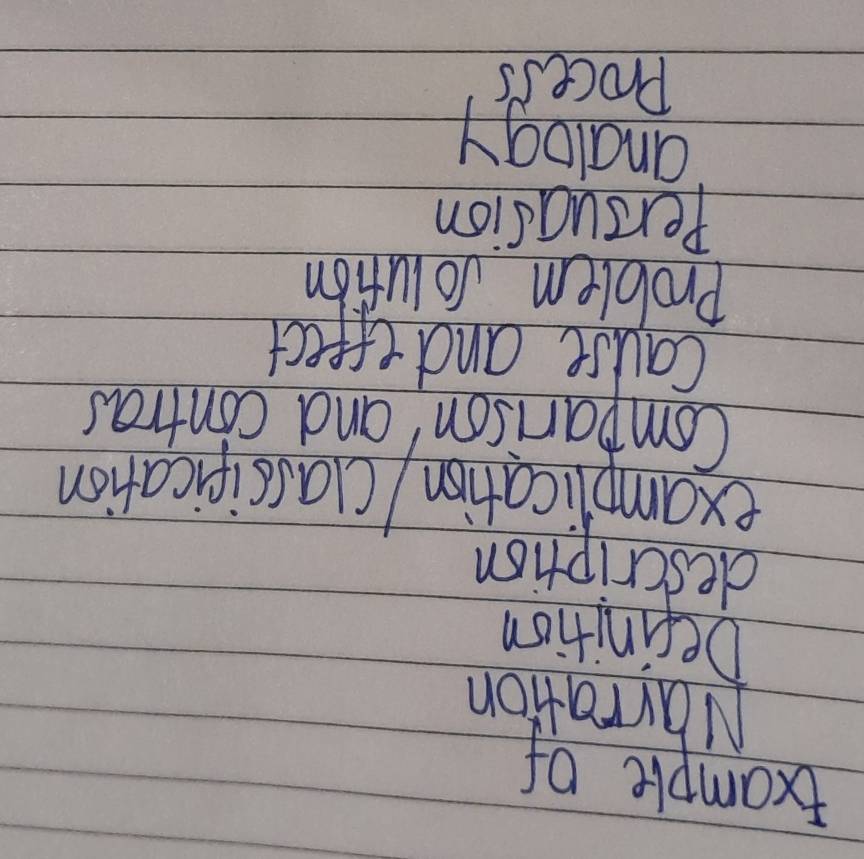 Example of
Narration
Definition
description
examplication/classification
Comparison, and contras
cause and effect
Problem solution
Persuasion
analogy
Process